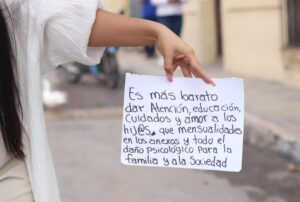 Es más barato
dar Atención, educación,
Cuidados y amor a los
hij@s, que mensualidades
en los anexos y todo el
daño psicológico para la
familia y a la Sociedad